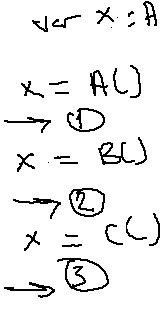 var x : A
x = A()
→ ①
x = B()
→ ②
x = C()
→ ③